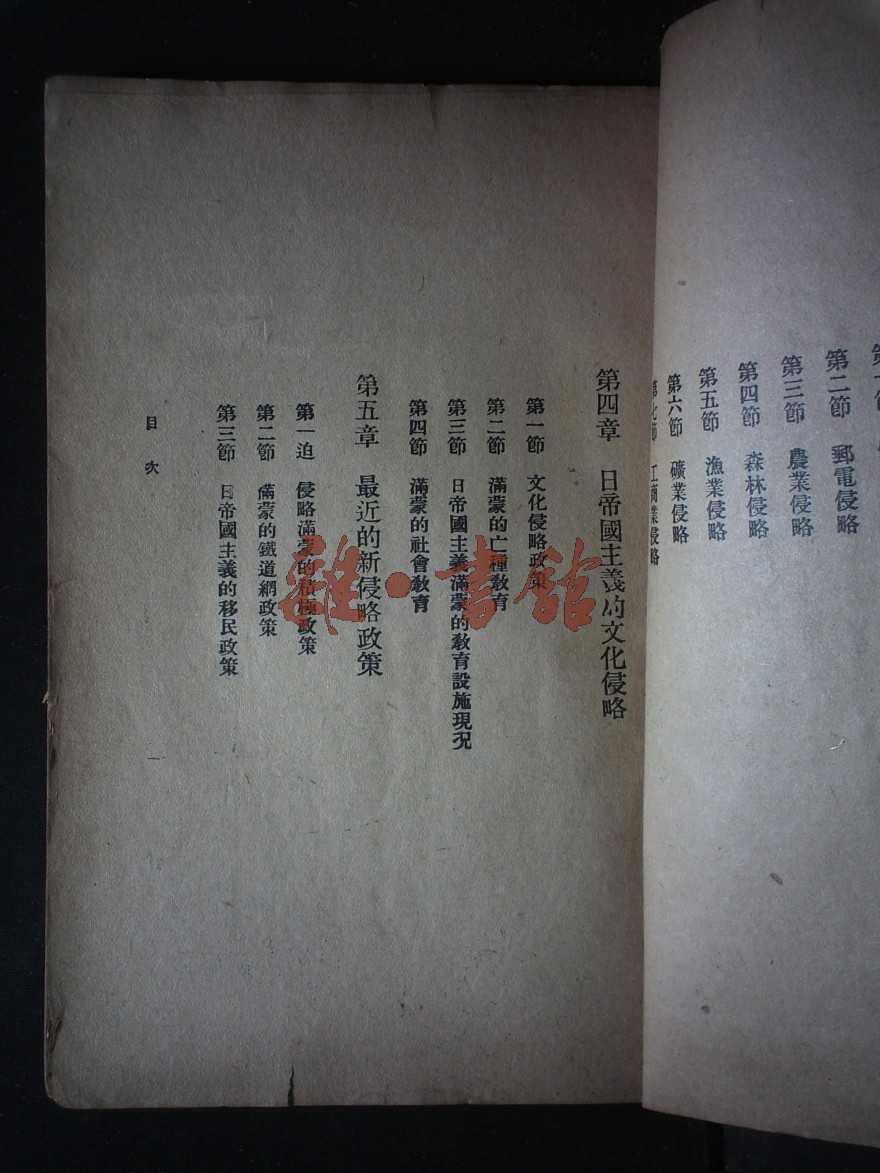 第二節　郵電侵略
第三節　農業侵略
第四節　森林侵略
第五節　漁業侵略
第六節　礦業侵略
第七節　工商業侵略
第四章　日帝國主義的文化侵略
第一節　文化侵略政策
第二節　滿蒙的亡種教育
第三節　日帝國主義滿蒙的教育設施現況
第四節　滿蒙的社會教育
第五章　最近的新侵略政策
第一迫　侵略滿蒙的積極政策
第二節　滿蒙的鐵道網政策
第三節　日帝國主義的移民政策
目次
雜·書館